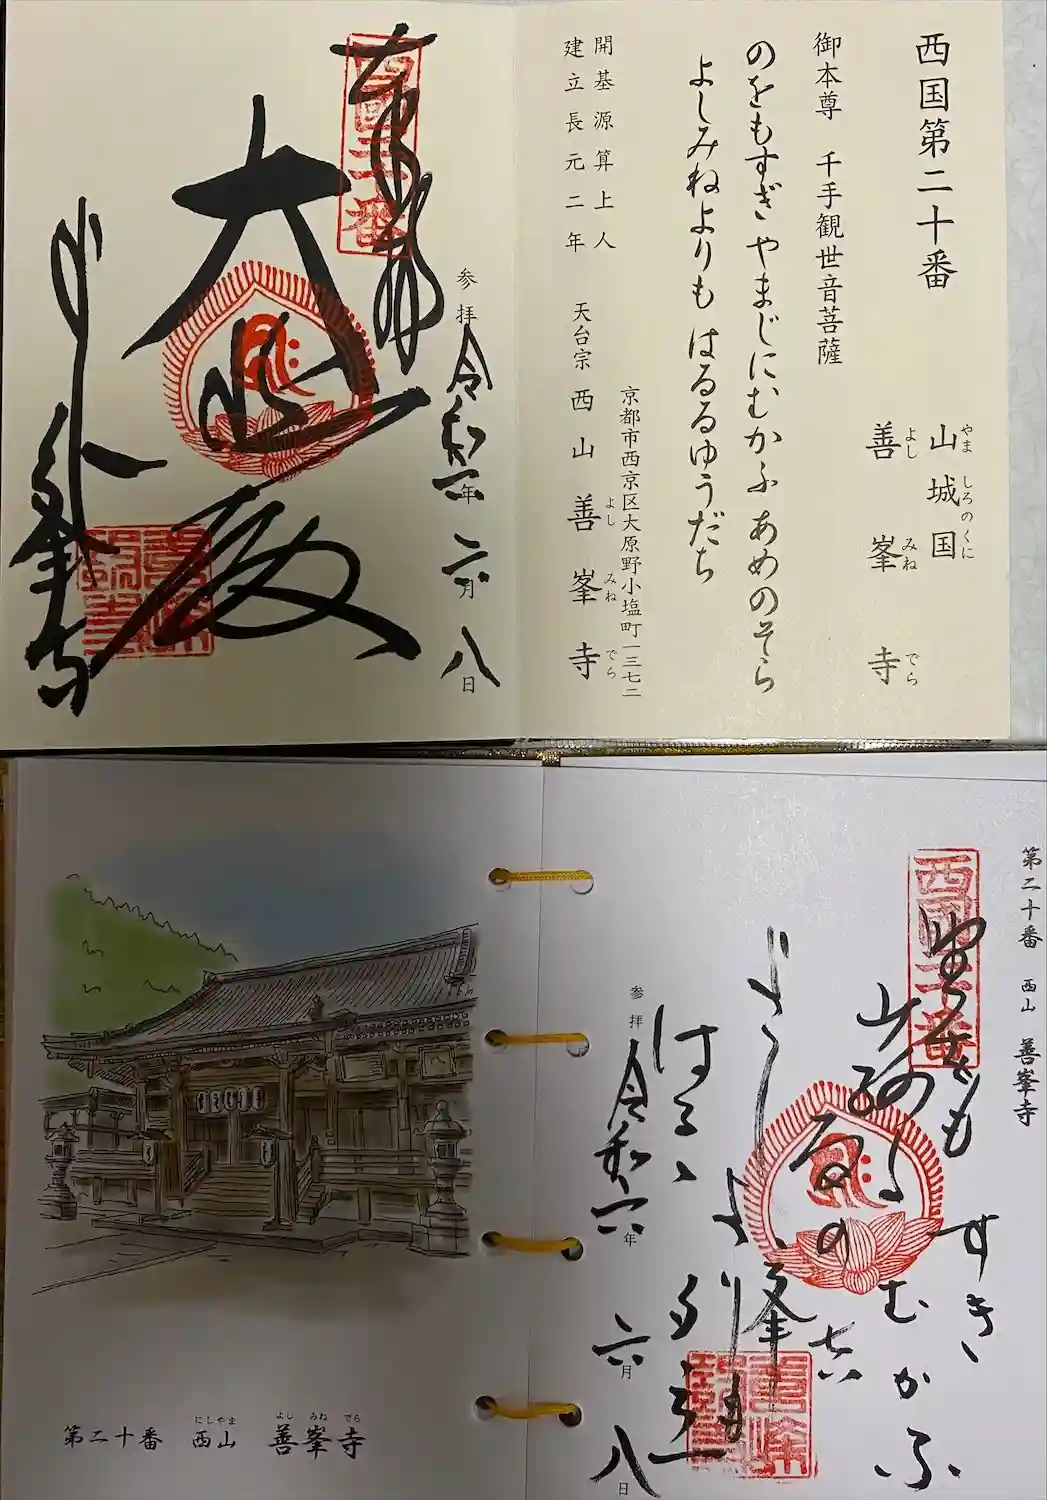 西国第二十番
山城国
やましろのくに
善峯寺
よしみねでら
御本尊 千手観世音菩薩
のをもすぎ やまじにむかふ あめのそら
よしみねよりも はるるゆうだち
開基 源算上人
建立 長元二年
京都市西京区大原野小塩町一三七二
天台宗 西山 善峯寺
よしみねでら
参拝 令和六年 六月 八日
奉拝
西国二十番
大悲殿
よしみね寺
第二十番 西山 善峯寺
西国二十番
野をもすき
山路にむかふ
雨の空
よし峰
よりも
はるゝ夕立
参拝 令和六年 六月 八日
第二十番 西山 善峯寺
にしやま よしみねでら